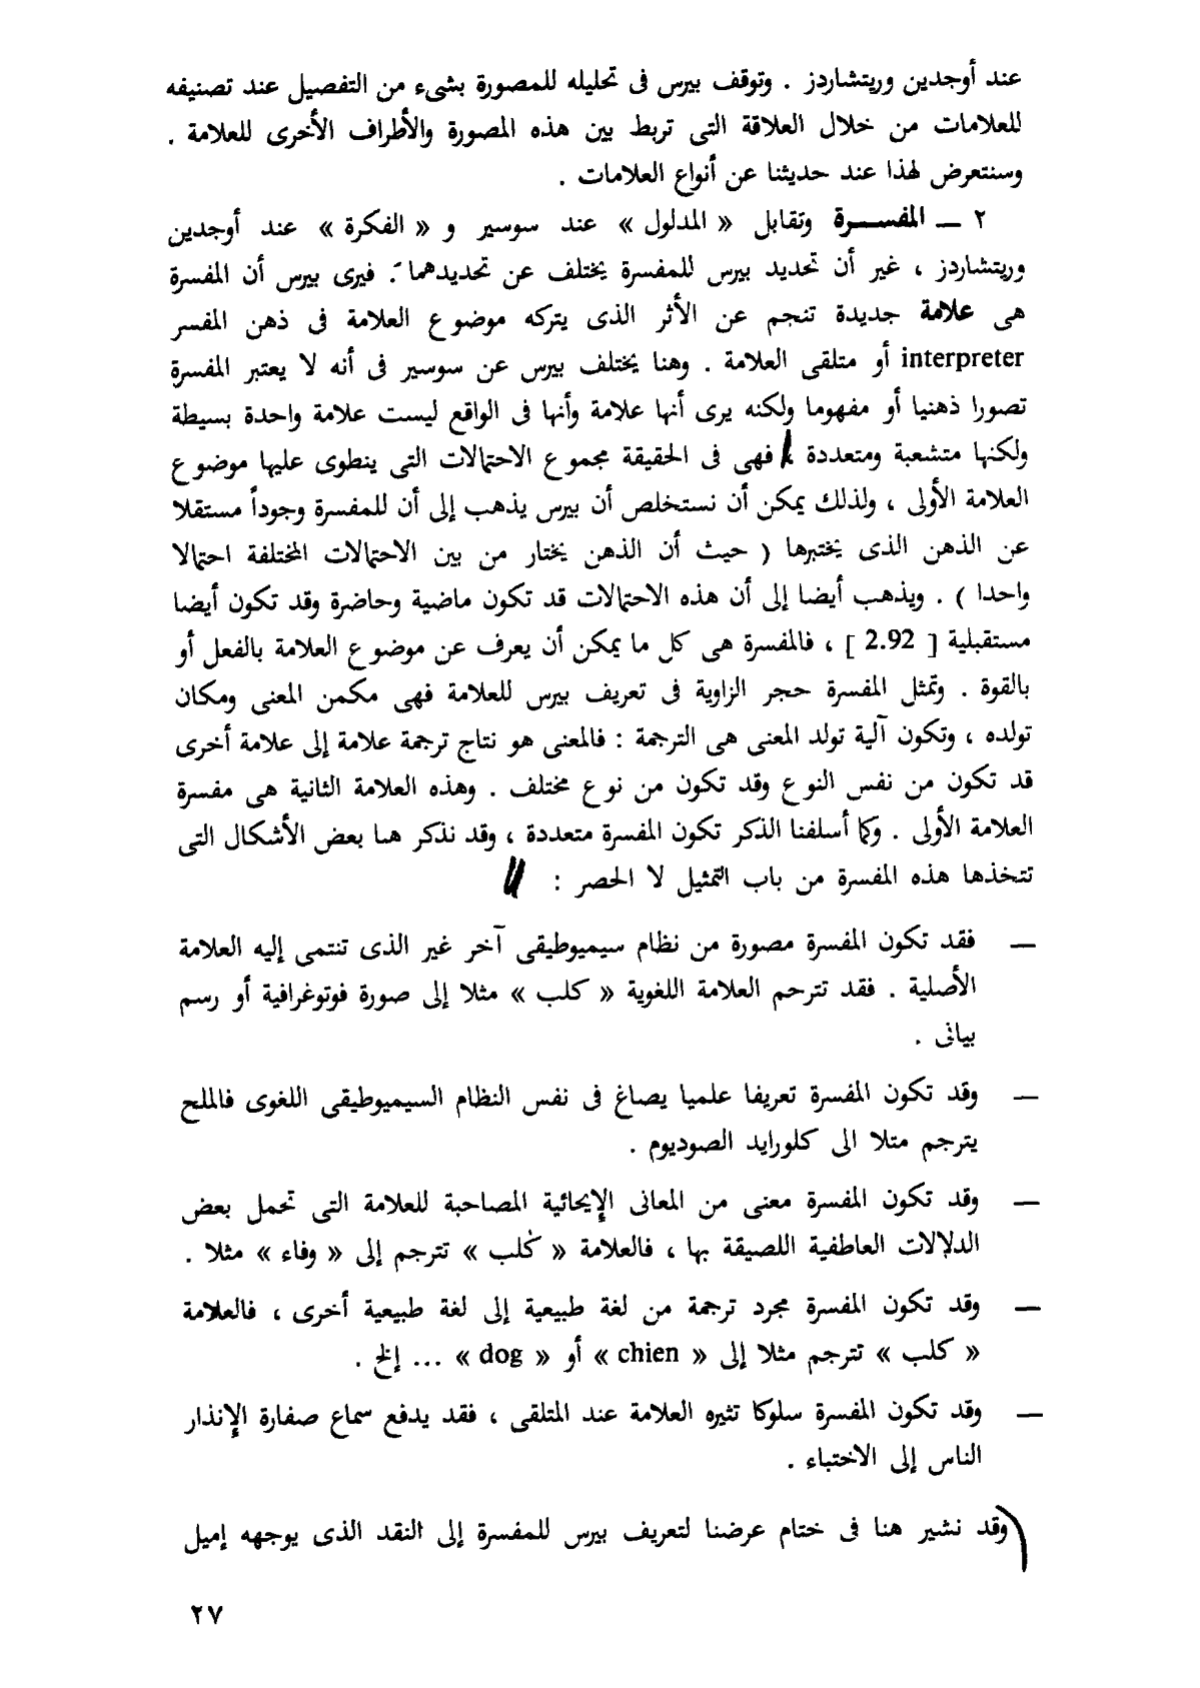 عند أوجدين وريتشاردز . وتوقف بيرس فى تحليله للمصورة بشىء من التفصيل عند تصنيفه
للعلامات من خلال العلاقة التى تربط بين هذه المصورة والأطراف الأخرى للعلامة .
وسنتعرض لهذا عند حديثنا عن أنواع العلامات .
٢ ــ المفســـرة وتقابل « المدلول » عند سوسير و « الفكرة » عند أوجدين
وريتشاردز ، غير أن تحديد بيرس للمفسرة يختلف عن تحديدهما . فيرى بيرس أن المفسرة
هى علامة جديدة تنجم عن الأثر الذى يتركه موضوع العلامة فى ذهن المفسر
interpreter أو متلقى العلامة . وهنا يختلف بيرس عن سوسير فى أنه لا يعتبر المفسرة
تصورا ذهنيا أو مفهوما ولكنه يرى أنها علامة وأنها فى الواقع ليست علامة واحدة بسيطة
ولكنها متشعبة ومتعددة . فهى فى الحقيقة مجموع الاحتمالات التى ينطوى عليها موضوع
العلامة الأولى ، ولذلك يمكن أن نستخلص أن بيرس يذهب إلى أن للمفسرة وجوداً مستقلا
عن الذهن الذى يختبرها ( حيث أن الذهن يختار من بين الاحتمالات المختلفة احتمالا
واحدا ) . ويذهب أيضا إلى أن هذه الاحتمالات قد تكون ماضية وحاضرة وقد تكون أيضا
مستقبلية [ 2.92 ] ، فالمفسرة هى كل ما يمكن أن يعرف عن موضوع العلامة بالفعل أو
بالقوة . وتمثل المفسرة حجر الزاوية فى تعريف بيرس للعلامة فهى مكمن المعنى ومكان
تولده ، وتكون آلية تولد المعنى هى الترجمة : فالمعنى هو نتاج ترجمة علامة إلى علامة أخرى
قد تكون من نفس النوع وقد تكون من نوع مختلف . وهذه العلامة الثانية هى مفسرة
العلامة الأولى . وكما أسلفنا الذكر تكون المفسرة متعددة ، وقد نذكر هنا بعض الأشكال التى
تتخذها هذه المفسرة من باب التمثيل لا الحصر :
ــ فقد تكون المفسرة مصورة من نظام سيميوطيقى آخر غير الذى تنتمى إليه العلامة
الأصلية . فقد تترجم العلامة اللغوية « كلب » مثلا إلى صورة فوتوغرافية أو رسم
بيانى .
ــ وقد تكون المفسرة تعريفا علميا يصاغ فى نفس النظام السيميوطيقى اللغوى فالملح
يترجم مثلا الى كلورايد الصوديوم .
ــ وقد تكون المفسرة معنى من المعانى الإيحائية المصاحبة للعلامة التى تحمل بعض
الدلالات العاطفية اللصيقة بها ، فالعلامة « كلب » تترجم إلى « وفاء » مثلا .
ــ وقد تكون المفسرة مجرد ترجمة من لغة طبيعية إلى لغة طبيعية أخرى ، فالعلامة
« كلب » تترجم مثلا إلى « chien » أو « dog » ... إلخ .
ــ وقد تكون المفسرة سلوكا تثيره العلامة عند المتلقى ، فقد يدفع سماع صفارة الإنذار
الناس إلى الاختباء .
وقد نشير هنا فى ختام عرضنا لتعريف بيرس للمفسرة إلى النقد الذى يوجهه إميل
٢٧